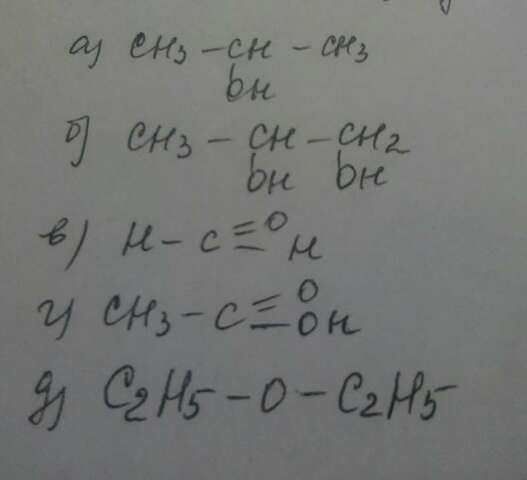 а) CH3 – CH – CH3
OH
б) CH3 – CH – CH2
OH OH
в) H – C = O
H
г) CH3 – C = O
– OH
д) C2H5 – O – C2H5